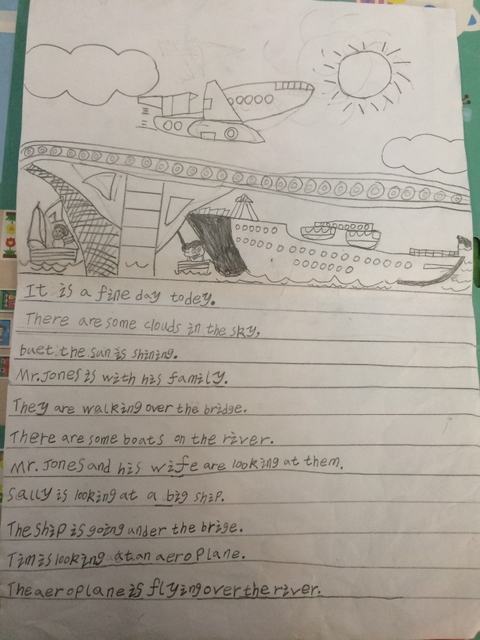 It is a fine day todey.
There are some clouds in the sky,
buet the sun is shining.
Mr. Jones is with his family.
They are walking over the bridge.
There are some boats on the river.
Mr. Jones and his wife are looking at them.
Sally is looking at a big ship.
The ship is going under the brige.
Tim is looking at an aeroplane.
The aeroplane is flying over the river.